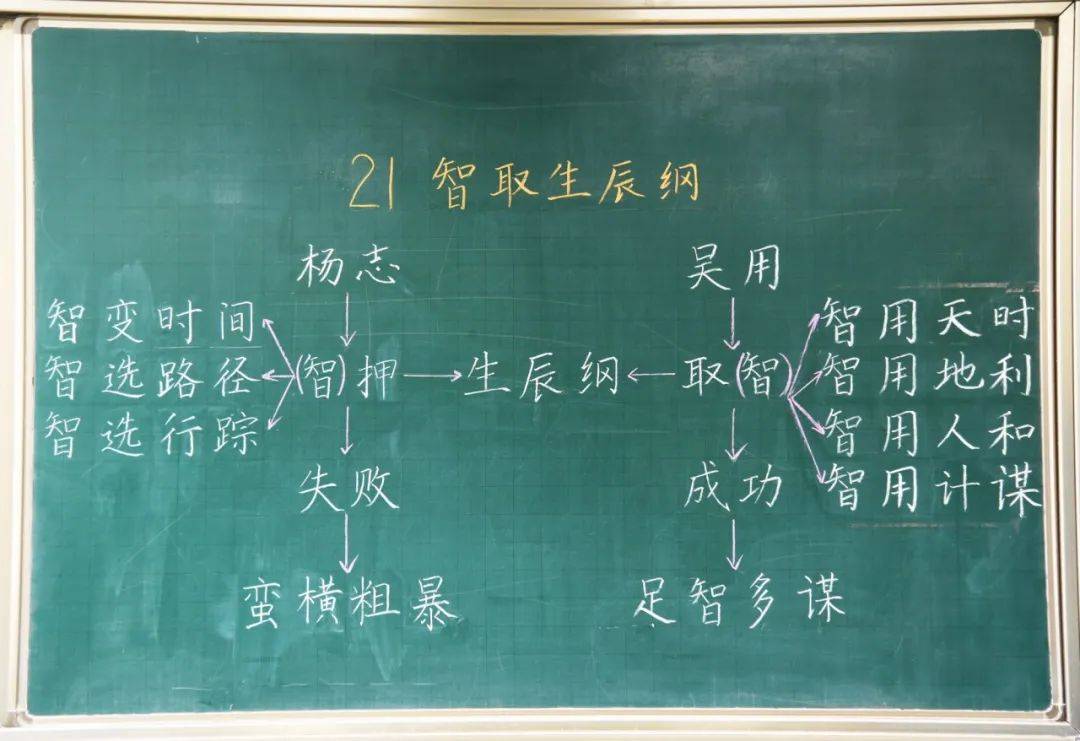 21 智取生辰纲
杨志 吴用
智变时间 智用天时
智选路径 (智)押 生辰纲 取(智) 智用地利
智选行踪 智用人和
失败 成功 智用计谋
蛮横粗暴 足智多谋